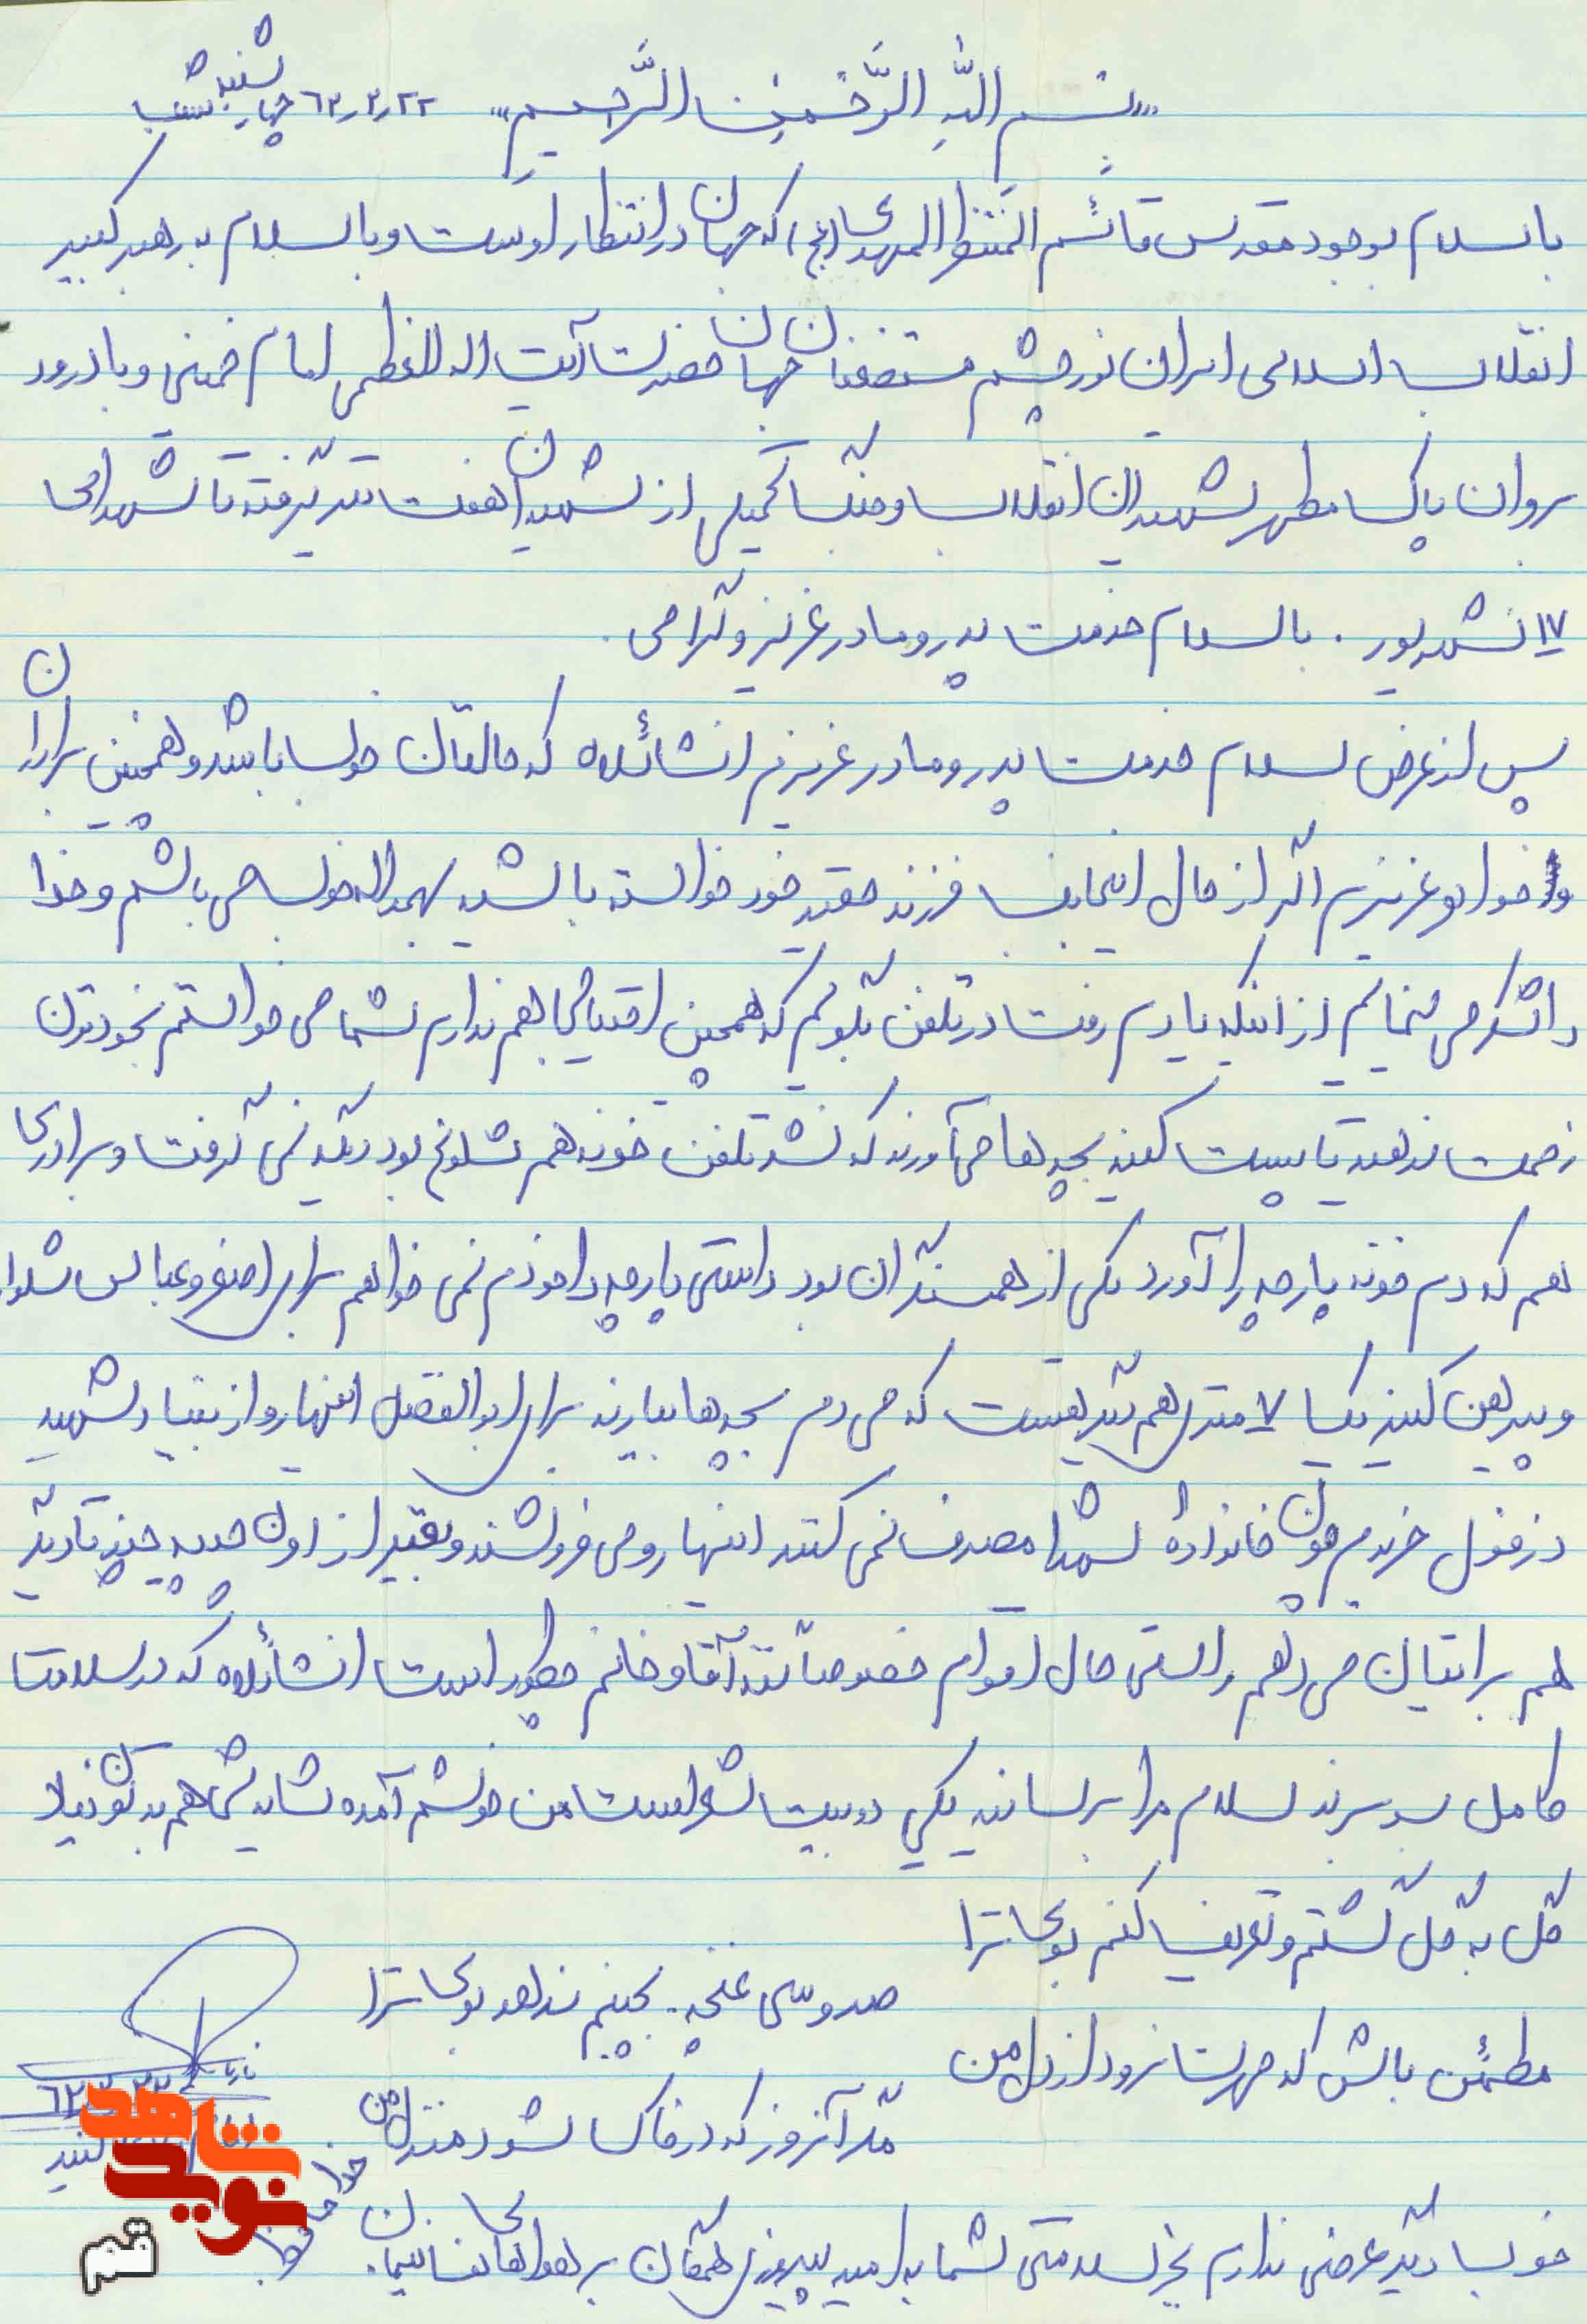 «بسم اللّه الرّحمن الرّحیم» ۶۳٫۳٫۲۲ چهارشنبه شب
با سلام بوجود مقدس قائم المنتظر المهدی (عج) که جهان در انتظار اوست و با سلام به رهبر کبیر
انقلاب اسلامی ایران نور چشم مستضعفان جهان حضرت آیت اله العظمی امام خمینی و با درود
بروان پاک مطهر شهیدان انقلاب و جنگ تحمیلی از شهیدان هفت تیر گرفته تا شهدای
۱۷ شهریور . با سلام خدمت پدر و مادر عزیز و گرامی .
پس از عرض سلام خدمت پدر و مادر عزیزم انشائلاه که حالتان خوب باشد و همچنین برادران
و خواهر عزیزم اگر از حال اینجانب فرزند حقیر خود خواسته باشید بحمداله خوب می باشم و خدا
را شکر می نمایم از اینکه یادم رفت در تلفن بگویم که همچین احتیاجی هم ندارم شما می خواستم بخودتون
زحمت ندهید تا پست کنید بچه ها می آورند که نشد تلفن خونه هم شلوغ بود دیگه نمی گرفت و برادری
هم که دم خونه پارچه را آورد یکی از همسنگران بود راستی پارچه را خودم نمی خواهم برای اصغر و عباس شلوار
و پیرهن کنید یک ۷ متری هم دیگر هست که می دم بچه ها بیارند برای ابوالفضل اینها رو از بنیاد شهید
دزفول خریدم چون خانواده شهدا مصرف نمی کنند اینها رو می فروشند و بقیه از اون جدید چند تا دیگر
هم براتان می دهم راستی حال اقوام خصوصا ننه آقا و خانم چطور است انشائلاه که در سلامت
کامل بسر برند سلام مرا برسانید یکی دو بیت شعر است من خوشم آمده شاید شما هم بدتون نیاد
گل به گل گشتم و تعریف کنم بوی ترا
صد و سی غنچه بچینم ندهد بوی ترا
مطمئن باش که مهرت نرود از دل من
مگر آنروز که در خاک شود منزل من
خوب دیگر عرضی ندارم بجز سلامتی شما به امید پیروزی همگان بر هواهای نفسانیمان.
خدا حافظ
۶۳٫۳٫۲۲
شاهد
نوید
قم